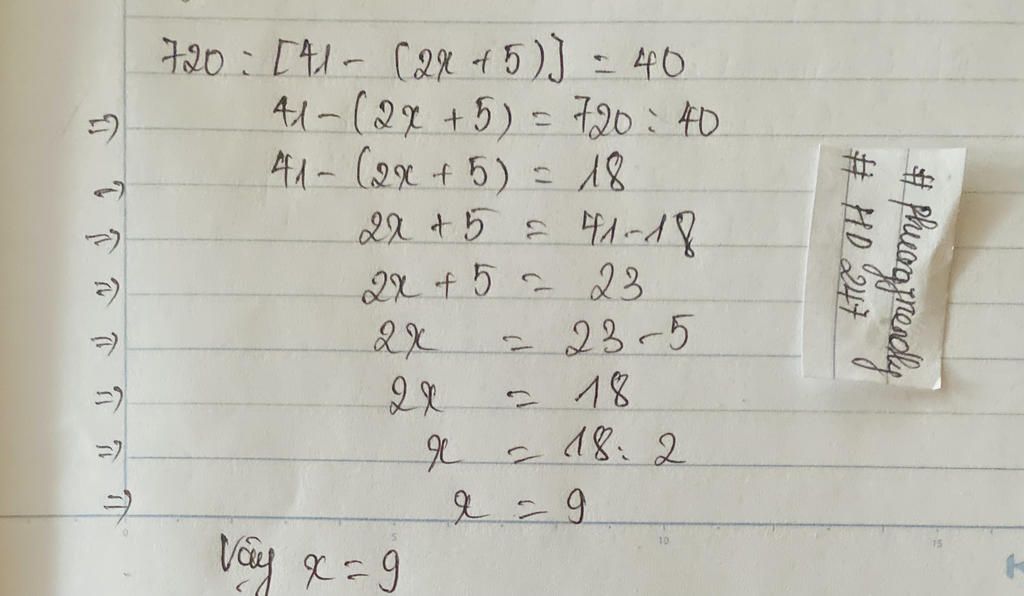 720 : [41 - (2x + 5)] = 40
=) 41 - (2x + 5) = 720 : 40
=) 41 - (2x + 5) = 18
=) 2x + 5 = 41 - 18
=) 2x + 5 = 23
=) 2x = 23 - 5
=) 2x = 18
=) x = 18 : 2
=) x = 9
Vậy x = 9
# HD 247
0 5 10 15
K